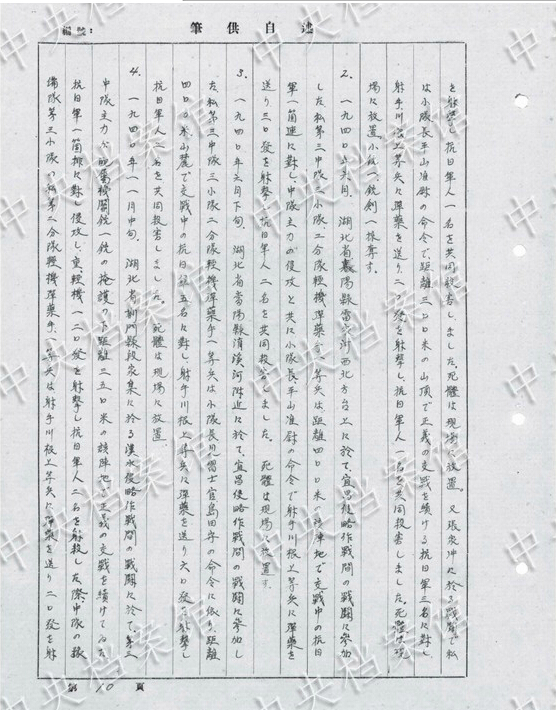 筆供自述
編號：
を射撃し抗日軍人一名を共同殺害しました。死體は現場に放置。又張家沖に於る戦闘で私
は小隊長平山准尉の命令で、距離三〇〇米の山頂で正義の交戦を續ける抗日軍三名に對し
射手川根上等兵に弾薬を送り二〇発を射撃し、抗日軍人一名を共同殺害しました。死體は現
場に放置。小銃一、銃剣一接奪す。
2．一九四〇年六月、湖北省襄陽縣雷 河西北方台上に於て、宜昌侵略作戦間の戦闘に参加
した私第三中隊、三小隊、二分隊軽機弾薬手、一等兵は、距離四〇〇米の該陣地で交戦中の抗日
軍一箇連に對し、中隊主力の侵攻と共に小隊長平山准尉の命令で射手川根上等兵に弾薬を
送り三〇発を射撃し抗日軍人二名を共同殺害しました。死體は現場に放置す。
3．一九四〇年六月下旬、湖北省當陽縣淯溪河附近に於て、宜昌侵略作戦間の戦闘に参加し
た私第三中隊三小隊二分隊軽機弾薬手一等兵は小隊長見習士官島田 の命令に依り、距離
四〇〇米山麓で交戦中の抗日軍五名に對し、射手川根上等兵に弾薬を送り六〇発を射撃し
抗日軍人二名を共同殺害しました。死體は現場に放置。
4．一九四〇年一一月中旬、湖北省荊門縣段家集に於る漢水侵略作戦間の戦闘に於て、第三
中隊主力は配属機関銃一銃の掩護の下距離三五〇米の該陣地で正義の交戦を續けてゐた
抗日軍一箇排に對し侵攻し、重、軽機一二〇発を射撃し抗日軍人二名を射殺した際中隊の豫
備隊第三小隊の私第二分隊軽機弾薬手一等兵は射手川根上等兵に弾薬を送り二〇発を射
第10頁
中央档案馆